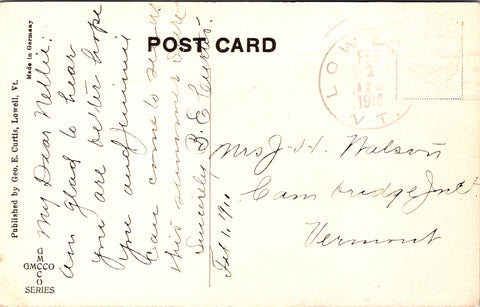 POST CARD
Made in Germany
Published by Geo. E. Curtis, Lowell, Vt.
GMCCO
GMCCO
SERIES
My Dear Nellie:
am glad to hear
you are better hope
you and Jimmie
can come to see us
this summer sure
Sincerely B. E. Curtis.
Feb 1, 1910
Mrs J. H. Watson
Cambridge Jnct
Vermont
LOWELL
FEB
1
1910
VT.